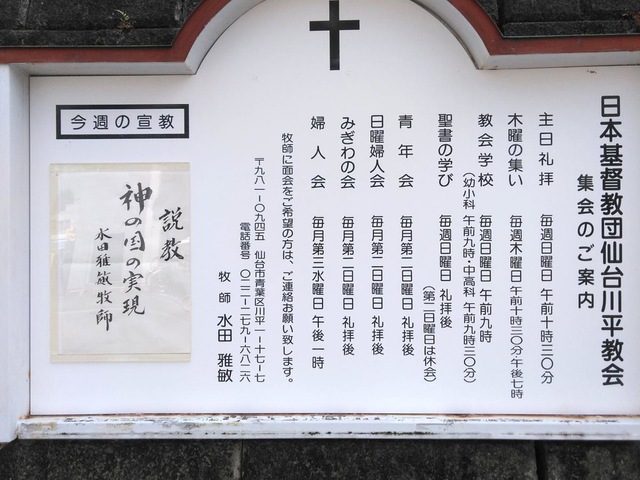 日本基督教団仙台川平教会
集会のご案内
主日礼拝 毎週日曜日 午前十時三〇分
木曜の集い 毎週木曜日 午前十時三〇分 午後七時
教会学校 毎週日曜日 午前九時
（幼小科 午前九時・中高科 午前九時三〇分）
聖書の学び 毎週日曜日 礼拝後
（第二日曜日は休会）
青年会 毎月第二日曜日 礼拝後
日曜婦人会 毎月第二日曜日 礼拝後
みぎわの会 毎月第二日曜日 礼拝後
婦人会 毎月第三水曜日 午後一時
牧師に面会をご希望の方は、ご連絡お願い致します。
〒九八一-〇九四五 仙台市青葉区川平一-十七-七
電話番号 〇二二-二七九-六八二六
牧師 水田 雅敏
今週の宣教
説教
神の国の実現
水田雅敏牧師